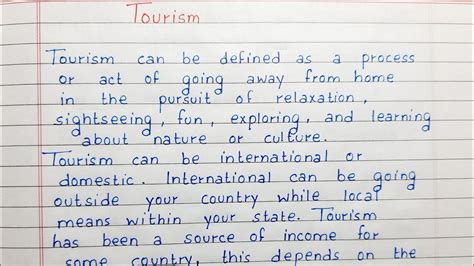 Tourism
Tourism can be defined as a process
or act of going away from home
in the pursuit of relaxation,
sightseeing, fun, exploring, and learning
about nature or culture.
Tourism can be international or
domestic. International can be going
outside your country while local
means within your state. Tourism
has been a source of income for
some country, this depends on the